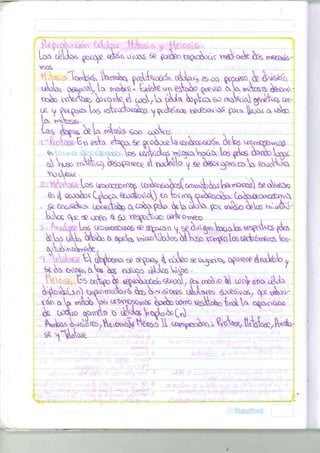 Reproducción Celular: Mitosis y Meiosis.
Las células porque están vivas se pueden reproducir mediante dos mecanis-
mos
Mitosis: También llamada, proliferación celular es un proceso de división
celular asexual, la madre. Existe un estado previo a la mitosis denomi-
nado interfase durante el cual, la célula duplica su material genético
y prepara las estructuras y proteínas necesarias para llevar a cabo
la mitosis.
Las etapas de la mitosis son cuatro:
1- Profase: En esta etapa, se produce la condensación de los cromosomas
en los centriolos migran hacia los polos dando lugar
al huso mitótico, desaparece el nucléolo y se desorganiza la envoltura
nuclear.
2- Metafase: Los cromosomas condensados se alinean
en el ecuador (placa ecuatorial) en forma Cada cromosoma
se encuentra conectado a cada polo de la célula por medio de los microtú-
bulos que se unen a su respectivo centrómero
3- Anafase: Los cromosomas se separan y se dirigen hacia los respectivos polos
de la célula debido a que los microtúbulos del huso rompen los centrómeros lon-
gitudinalmente.
4- Telofase: El citoplasma se separa, el núcleo se organiza, aparece el nucléolo y
se da origen a las dos nuevas células hijas.
Meiosis: Es un tipo de reproducción sexual, por medio del cual una célula
diploide(2n) experimentará dos divisiones celulares sucesivas, que
a la mitad los cromosomas dando como resultado final la aparición
de cuatro gametos o células haploides (n).
Ambas divisiones, Meiosis I y Meiosis II comprenden: Profase, Metafase, Anafa-
se y Telofase.
Standford